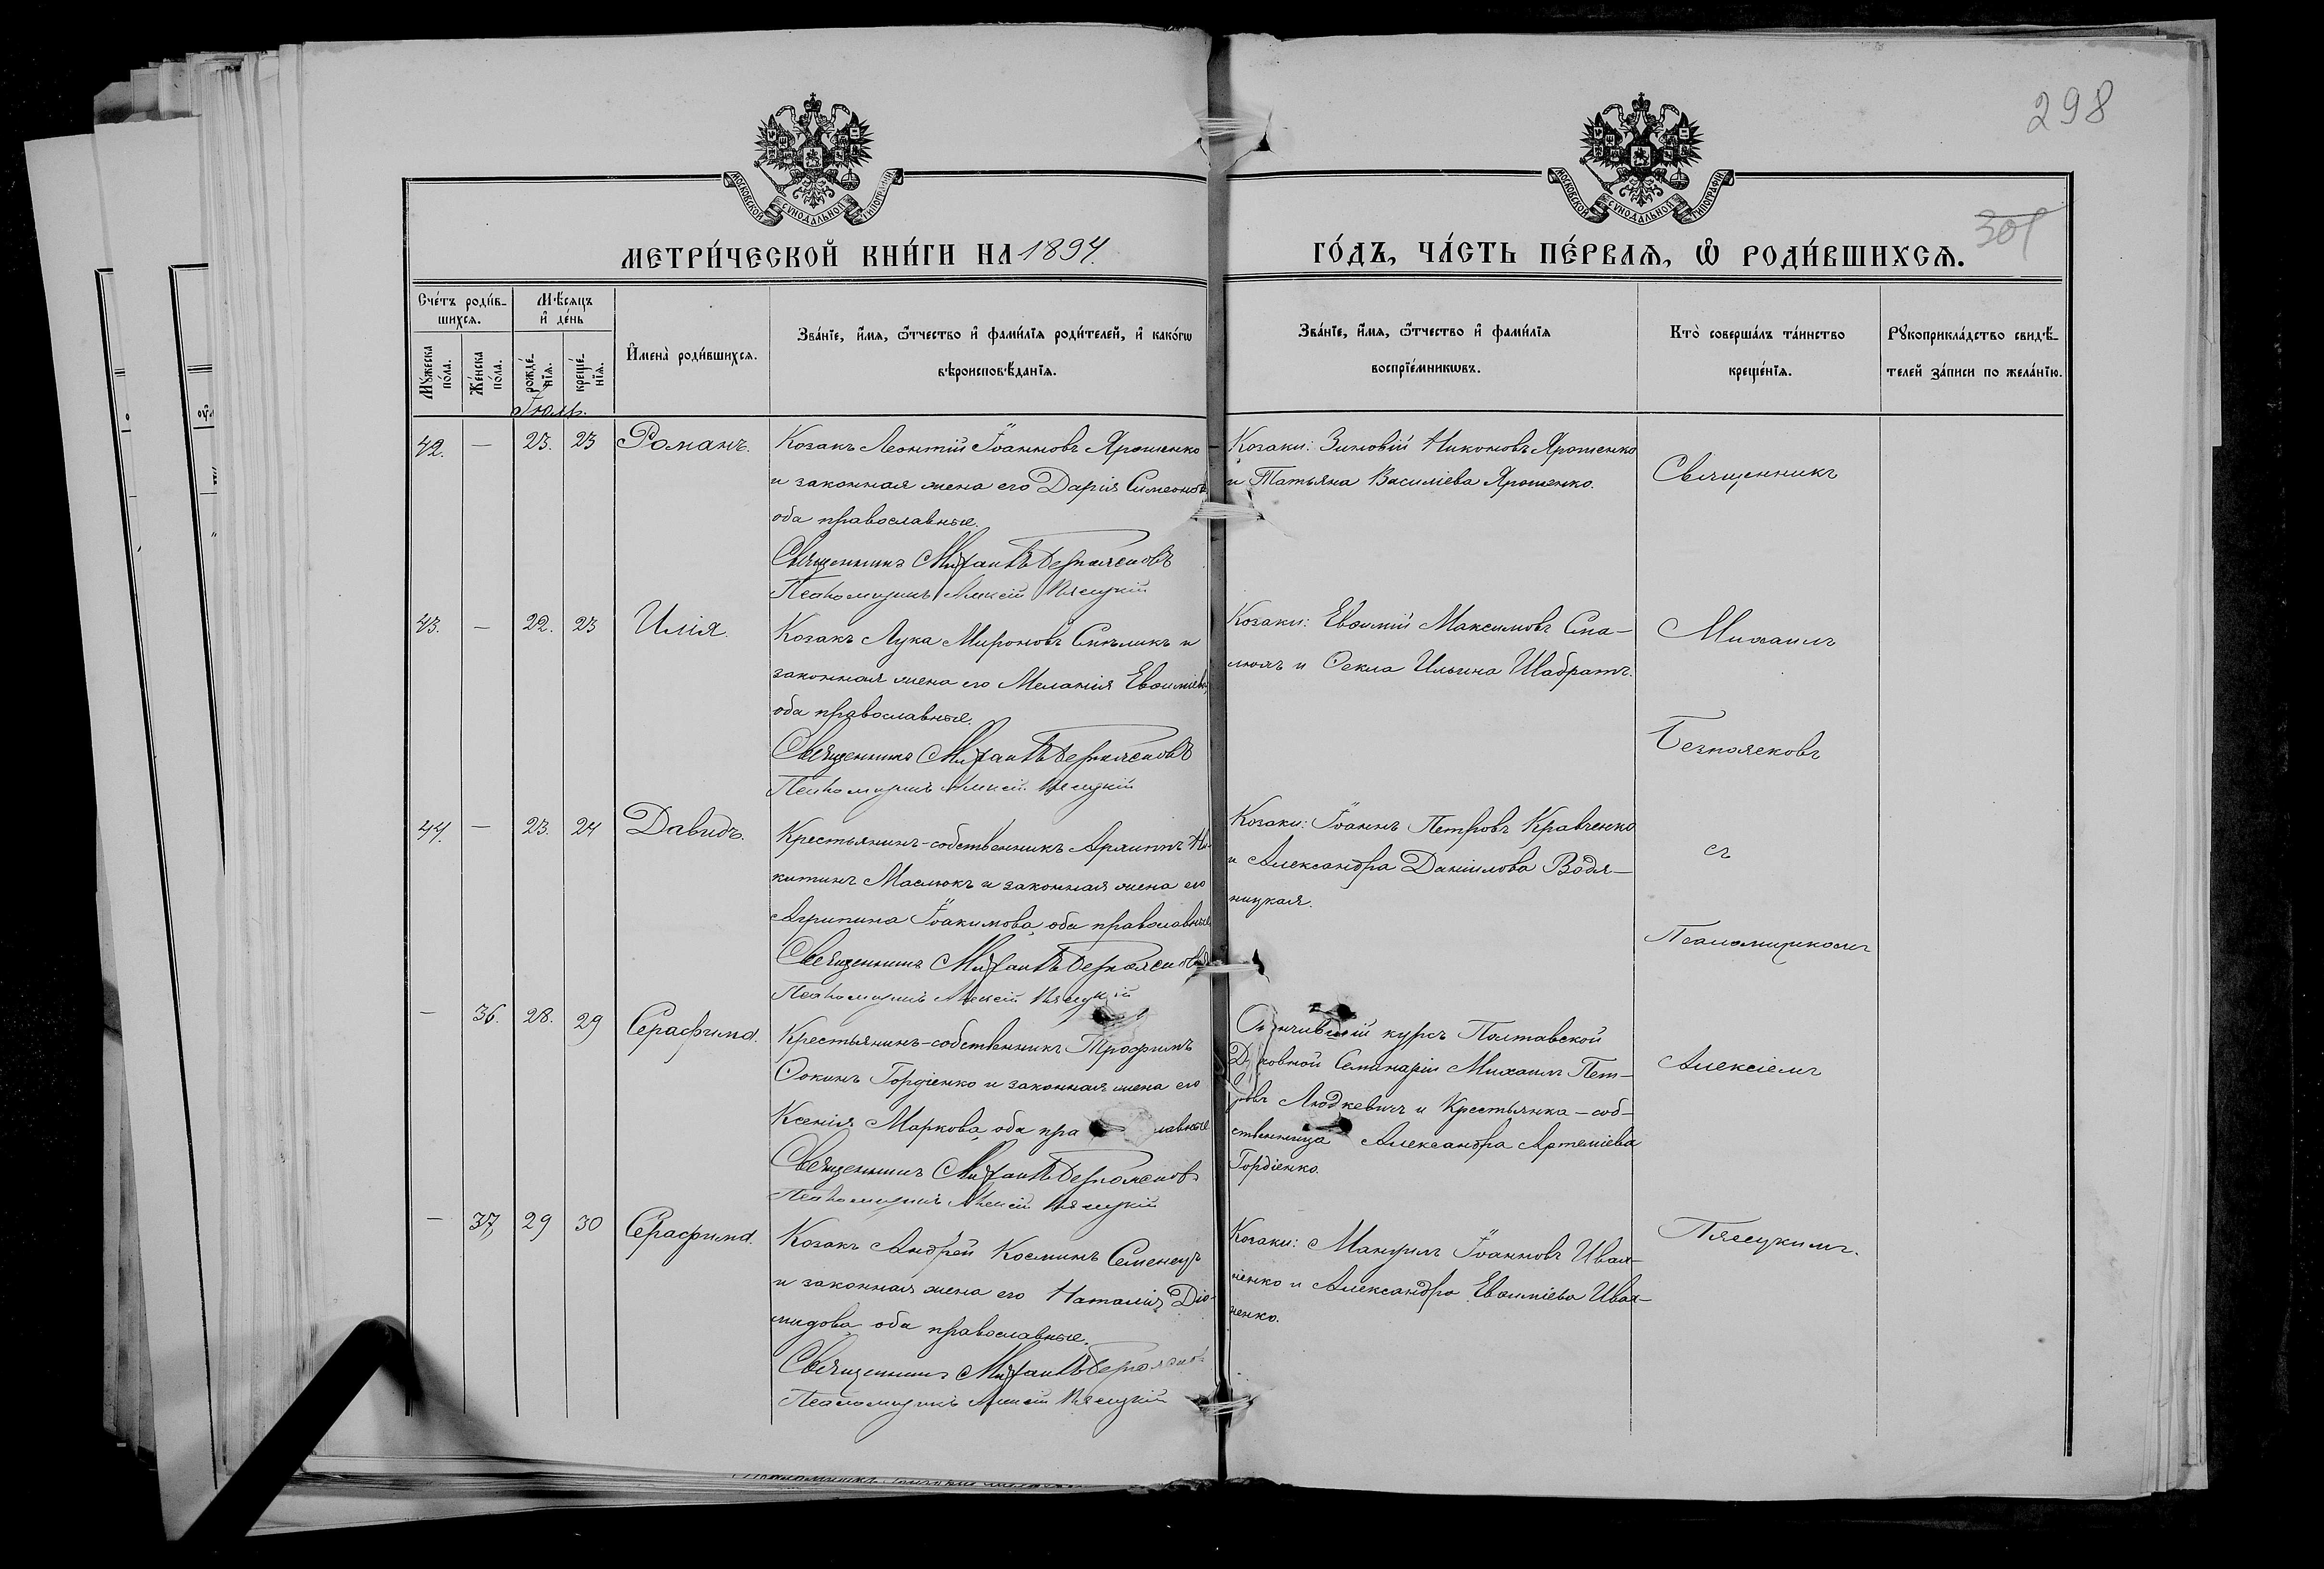 298
МОСКОВСКОЙ СѴНОДАЛЬНОЙ ТИПОГРАФІИ
МОСКОВСКОЙ СѴНОДАЛЬНОЙ ТИПОГРАФІИ
301
МЕТРИ́ЧЕСКОЙ КНИ́ГИ НА 1894.
ГО́ДЪ, ЧА́СТЬ ПЕ́РВАѦ, Ѡ҆ РОДИ́ВШИХСѦ.
Сче́тъ роди́в-
шихсѧ.
Мꙋ́жеска
по́ла.
Же́нска
по́ла.
Мѣ́сѧцъ
и҆ де́нь
рожде́-
нїѧ.
креще́-
нїѧ.
И҆мена̀ роди́вшихсѧ.
Зва́нїе, и҆́мѧ, ѻ҆́тчество и҆ фами́лїѧ роди́телей, и҆ како́гѡ
вѣроисповѣ́данїѧ.
Зва́нїе, и҆́мѧ, ѻ҆́тчество и҆ фами́лїѧ
воспрїе́мникѡвъ.
Кто̀ соверша́лъ та́инство
креще́нїѧ.
Рꙋкоприкла́дство свидѣ́-
телей за́писи по жела́нїю.
Іюль.
42. — 23. 23 Романъ.
Козакъ Леонтій Іоанновъ Ярошенко
и законная жена его Дарія Симеонова
оба православные.
Священникъ Михаилъ Безпоясковъ
Псаломщикъ Алексій Пясецкій
Козаки: Зиновій Никоновъ Ярошенко
и Татьяна Василіева Ярошенко.
43. — 22. 23 Илія.
Козакъ Лука Мироновъ и
законная жена его Меланія Евѳиміева
оба православные.
Священникъ Михаилъ Безпоясковъ
Псаломщикъ Алексій Пясецкій
Козаки: Евѳимій Максимовъ Сма-
и Ѳекла Ильина Шабратъ.
44. — 23. 24 Давидъ.
Крестьянинъ-собственникъ Архиппъ Ни-
китинъ Маслюкъ и законная жена его
Агрипина Іоакимова, оба православные
Священникъ Михаилъ Безпоясковъ
Псаломщикъ Алексій Пясецкій
Козаки: Іоаннъ Петровъ Кравченко
и Александра Даніилова Водя-
ницкая.
— 36. 28. 29 Серафима.
Крестьянинъ-собственникъ Трофимъ
Ѳокинъ Гордіенко и законная жена его
Ксенія Маркова, оба пра лавные
Священникъ Михаилъ Безпоясковъ
Псаломщикъ Алексій Пясецкій
Окончившій курсъ Полтавской
Духовной Семинаріи Михаилъ Пет-
ровъ Людкевичъ и Крестьянка-соб-
ственница Александра Артеміева
Гордіенко.
— 37, 29 30 Серафима.
Козакъ Андрей Косминъ Семенецъ
и законная жена его Наталія Діо-
мидова, оба православные.
Священникъ Михаилъ Безпоясковъ
Псаломщикъ Алексій Пясецкій
Козаки: Мануилъ Іоанновъ Ивах-
ненко и Александра Евѳиміева Ивах-
ненко.
Священникъ
Михаилъ
Безпоясковъ
съ
Псаломщикомъ
Алексіемъ
Пясецкимъ.